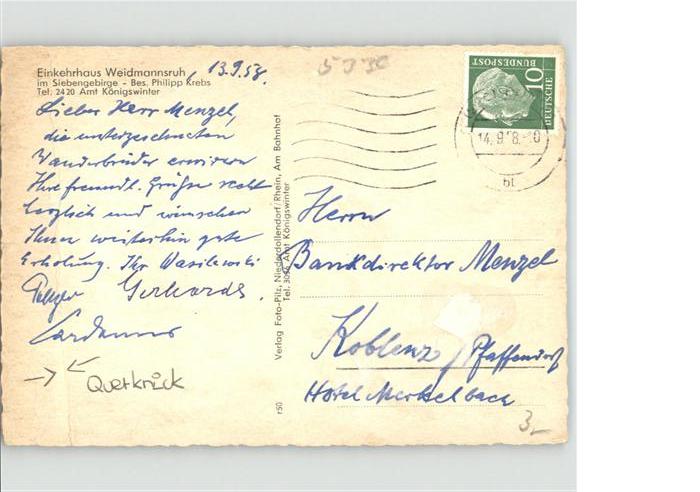 Einkehrhaus Weidmannsruh, 13.9.58.
im Siebengebirge - Bes. Philipp Krebs
Tel. 2420 Amt Königswinter
Lieber Herr Menzel,
die unterzeichneten
Wanderbrüder erwidern
Ihre freundl. Grüße recht
herzlich und wünschen
Ihnen weiterhin gute
Erholung. Ihr Wasilewski
Gerhards.
Querknick
Verlag Foto-Pilz, Niederdollendorf/Rhein, Am Bahnhof
Tel. Amt Königswinter
r50
DEUTSCHE
BUNDESPOST
10
14.9.58.-10
bt
Herrn
Bankdirektor Menzel
Koblenz / Pfaffendorf
Hotel Merkelbach
3,-